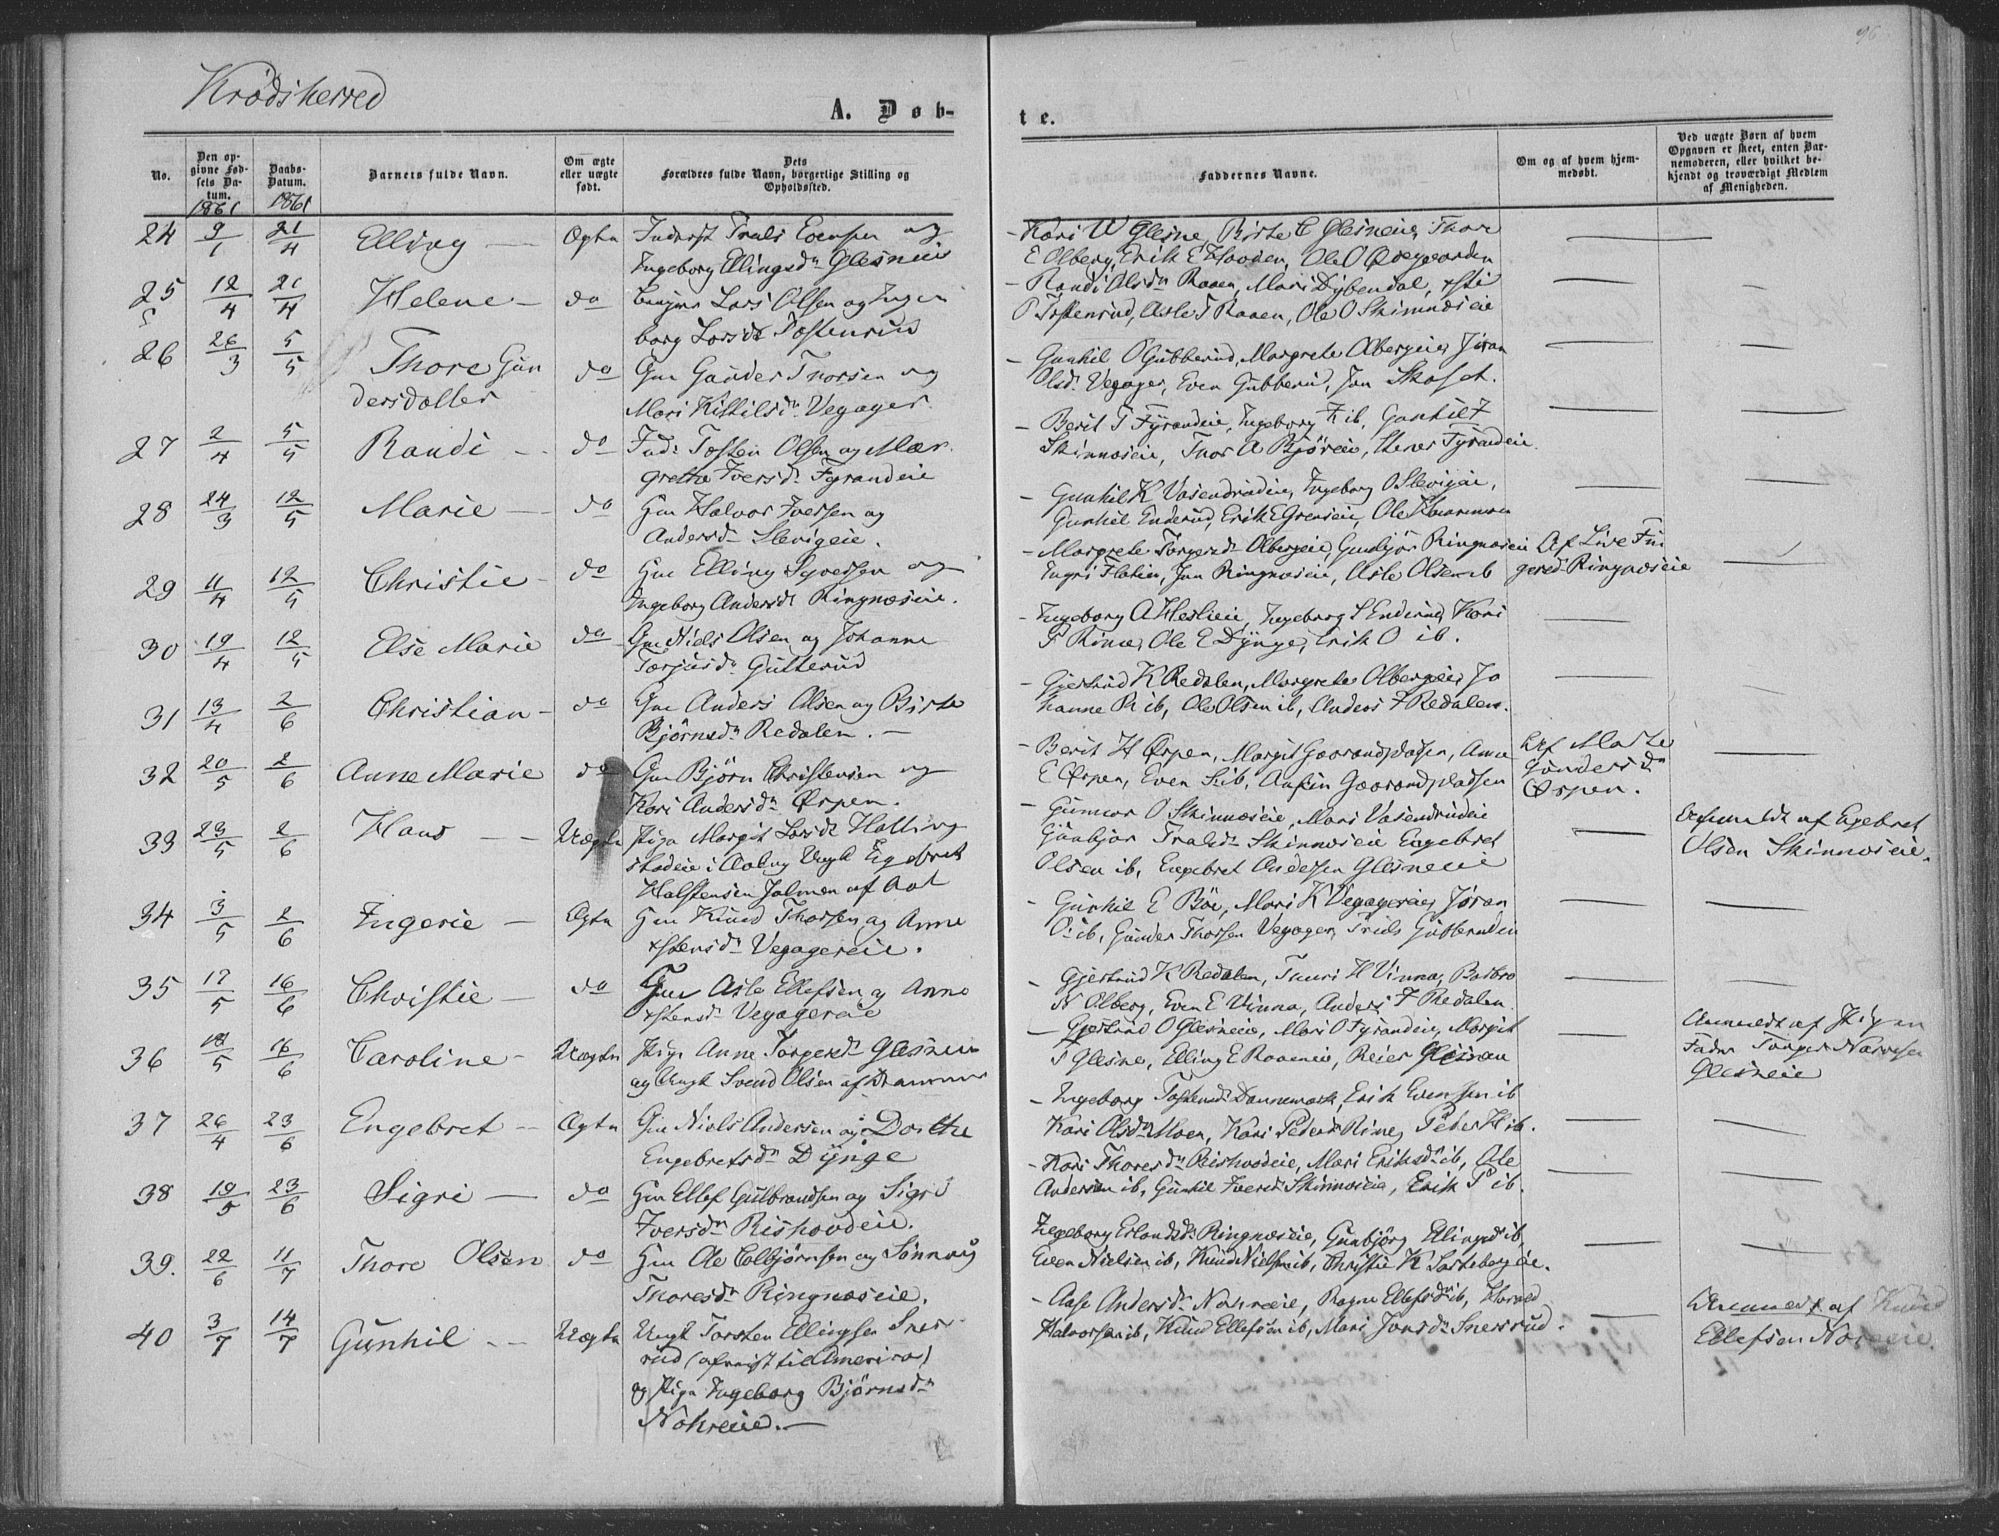 96
Krødsherred
A. Døb-
te.
No.
Den op-
givne Fød-
sels Da-
tum.
1861
Daabs-
Datum.
1861
Barnets fulde Navn.
Om ægte
eller uægte
født.
Dets
Forældres fulde Navn, borgerlige Stilling og
Opholdssted.
Faddernes Navne.
Om og af hvem hjem-
medøbt.
Ved uægte Børn af hvem
Opgaven er skeet, enten Bar-
nemoderen, eller hvilket be-
kjendt og troværdigt Medlem
af Menigheden.
24 9/1 21/4 Elling — Ægte Inderst Truls Evensen og
Ingeborg Ellingsdr Glesneie
- Kari W Glesne, Birte E Glesneie, Thore
E Olberg, Erik E Hovden, Ole O
25 12/4 21/4 Helene — do Lars Olsen og Inge
borg Larsdr Tostenrud
- Randi Olsdr Raaen, Mari Dybendal,
P Tostenrud, Asle T Raaen, Ole O Skinnæseie
26 26/3 5/5 Thore Gun
dersdatter do Gm Gunder Thorsen og
Mari Kittilsdr Vegager
- Gunhil O Gubberud, Margrete Olbergeie, Jøran
Olsdr Vegager, Even Gubberud, Jon
27 2/4 5/5 Randi do Ind. Tosten Olsen og Mar
grethe Iversdr Fyrandeie
- Berit T Fyrandeie, Ingeborg F ib, Gunhil F
Skinnæseie, Thor A Bjøreie, Stener Fyrandeie
28 24/3 12/5 Marie — do Gm Halvor Iversen og
Andersdr Slevigeie.
- Gunhil K Vasendrudeie, Ingeborg O Slevigeie,
Gunhil Enderud, Erik E Grenseie, Ole
29 11/4 12/5 Christie — do Gm Elling Syversen og
Ingeborg Andersdr Ringnæseie.
- Margrete Torgersdr Olbergeie, Gunbjør Ringnæseie
Ingri Flatin, Jon Ringnæseie, Asle Olsen ib
Af Live
Ringnæseie
30 19/4 12/5 Else Marie do Gm Niels Olsen og Johanne
Torjusdr Gulterud
- Ingeborg A Heslieie, Ingeborg S Enderud, Kari
P Rime, Ole E Dynge, Erik O ib.
31 13/4 2/6 Christian — do Gm Anders Olsen og Birte
Bjørnsdr Redalen. —
- Gjertrud K Redalen, Margrete Olbergeie, Jo
hanne R ib, Ole Olsen ib, Anders F Redalen.
32 20/5 2/6 Anne Marie do Gm Bjørn Christensen og
Kari Andersdr Ørpen.
- Berit H Ørpen, Margit Gaarandpladsen, Anne
E Ørpen, Even S ib, Anfin Gaarandpladsen
Af Marte
Gundersdr
Ørpen.
33 23/5 2/6 Hans — Uægte Pige Margit Larsdr Halling
stadeie i Aal og Ungk Engebret
Halstensen Jalmen af Aal
Gunvor O Skinnæseie, Mari Vasendrudeie
Gunbjør Trulsdr Skinnæseie Engebret
Olsen ib, Engebret Andersen Glesneie
Anmeldt af Engebret
Olsen Skinnæseie.
34 3/5 2/6 Ingerie — Ægte Gm Knud Thorsen og Anne
Vegagereie.
- Gunhil E Bøe, Mari K Vegagereie, Jøran
O ib, Gunder Thorsen Vegager, Truls Gubberudeie
35 17/5 16/6 Christie — do Gm Asle Ellefsen og Anne
Vegagereie
- Gjertrud K Redalen, Thuri H Vinna, Barbro
N Olberg, Even E Vinna, Anders F Redalen
36 18/5 16/6 Caroline — Uægte Pige Anne Torgersdr Glesneie
og Ungk Svend Olsen af Drammen
- Gjertrud O Glesneie, Mari O Fyrandeie, Margit
P Glesne, Elling E Raaeneie, Reier Glesneie
Anmeldt af Pigens
Fader Torger Narvesen
Glesneie
37 26/4 23/6 Engebret — Ægte Gm Niels Andersen og Dorthe
Engebretsdr Dynge
- Ingeborg Tostensdr Dannemark, Erik Evensen ib
Kari Olsdr Moen, Kari Pedersdr Rime, Peder H ib.
38 19/5 23/6 Sigri — do Gm Ellef Gulbrandsen og Sigri
Iversdr Rishovdeie.
- Kari Thoresdr Rishovdeie, Mari Eriksdr ib, Ole
Andersen ib, Gunhil Iversdr Skinnæseie, Erik P ib.
39. 22/6 11/7 Thore Olsen do Gm Ole Colbjørnsen og Sønnøv
Thoresdr Ringnæseie.
Ingeborg Erlandsdr Ringnæseie, Gunbjørg Ellingsdr ib,
Even Nielsen ib, Knud Nielsen ib, Christie K
40 3/7 14/7 Gunhil — Uægte Ungk Torsten Ellingsen Sner
rud (afreist til America)
og Pige Ingeborg Bjørnsdr
Nohreeie. —
- Aase Andersdr Nohreeie, Ragne Ellefsdr ib, Harald
Halvorsen ib, Knud Ellefsen ib, Mari Jonsdr Snerrud.
Anmeldt af Knud
Ellefsen Noreeie.